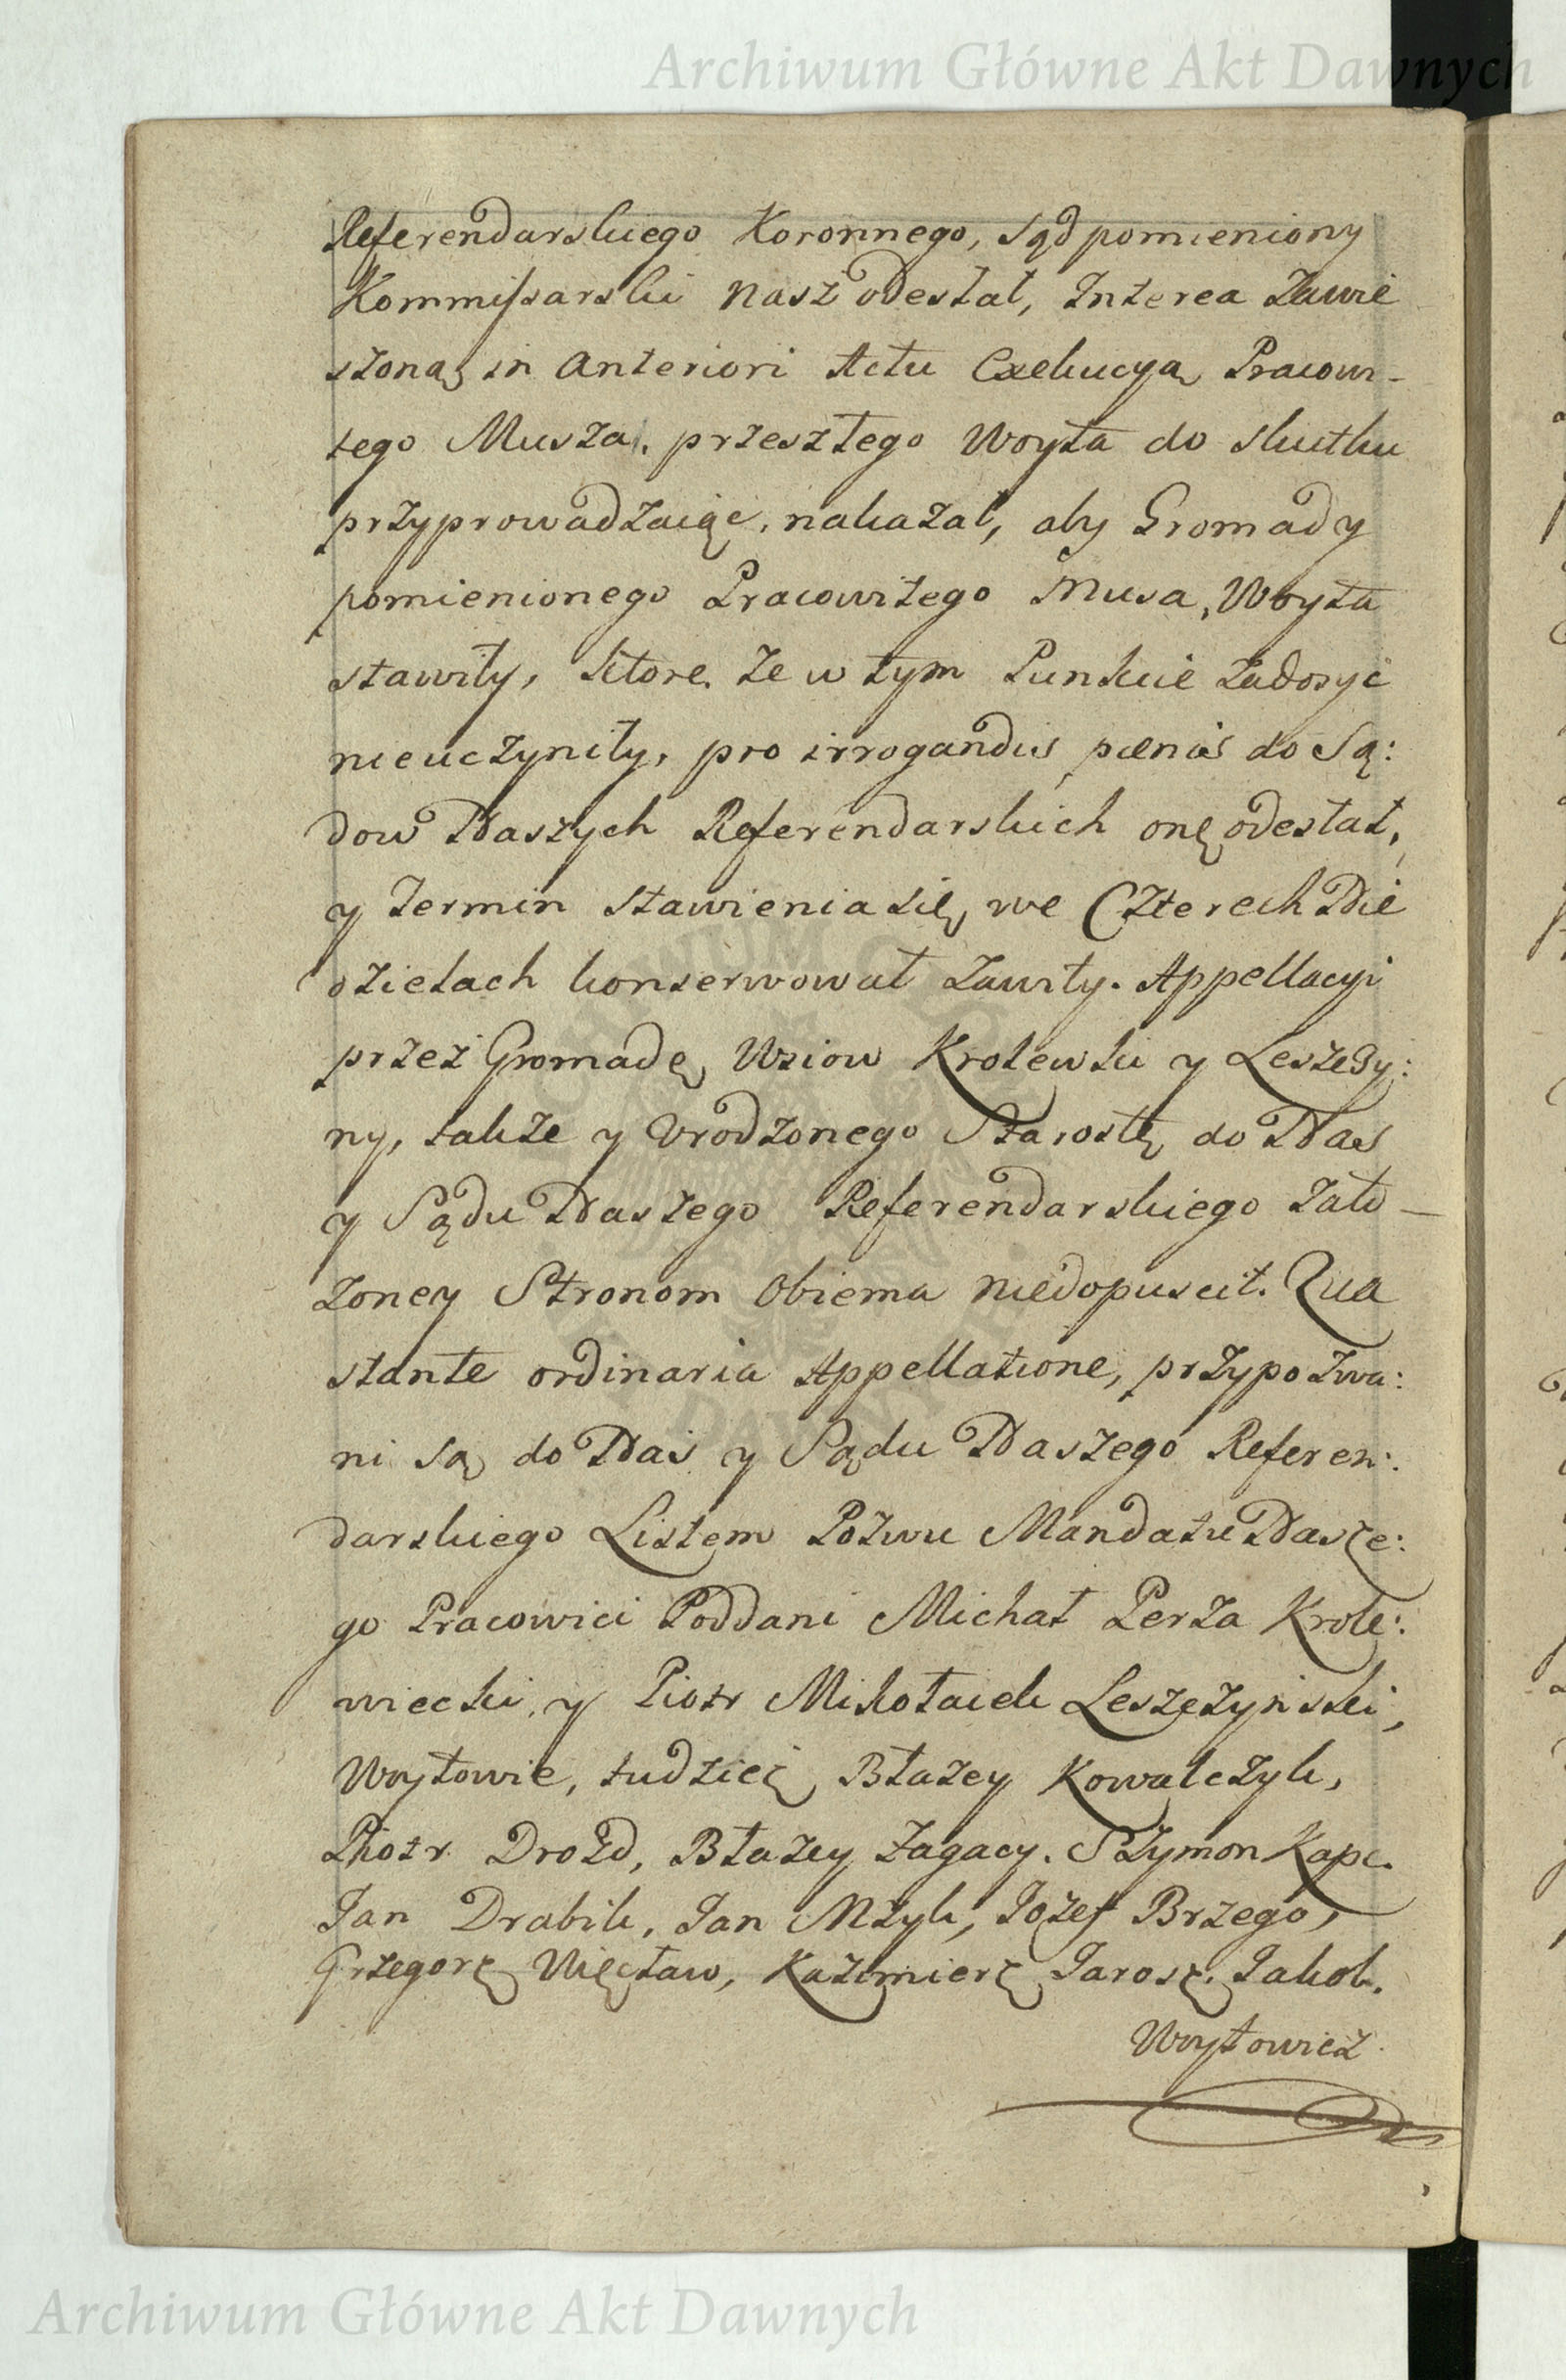 Archiwum Główne Akt Dawnych
Referendarskiego Koronnego, Sąd pomieniony
Kommissarski Nasz odesłał, Interea Zawie
szoną in Anteriori Actu Exekucyą Pracowi-
tego Musza, przeszłego Woyta do skutku
przyprowadzaiąc, nakazał, aby Gromady
pomienionego Pracowitego Musa, Woyta
stawiły, ktore że w tym Punkcie zadosyć
nieuczyniły, pro irrogandis pænis do Są:
dow Naszych Referendarskich onę odesłał,
y Termin stawienia się, we Czterech Nie
dzielach konserwował zawity. Appellacyi
przez Gromadę, Wsiow Krolewski y Leszczy:
ny, także y Urodzonego Starostę do Nas
y Sądu Naszego Referendarskiego zało-
żoney Stronom Obiema niedopuscił. Qua
stante ordinaria Appellatione, przypozwa:
ni są do Nas y Sądu Naszego Referen:
darskiego Listem Pozwu Mandatu Nasze:
go Pracowici Poddani Michał Perza Krole:
wiecki, y Piotr Mikołaiek Leszczyński,
Woytowie, tudziez Błazey Kowalczyk,
Piotr Drozd, Błazey Zagacy, Szymon Kapc.
Jan Drabik, Jan Mzyk, Jozef Brzego,
Grzegorz Więcław, Kazimierz Jarosz, Jakob.
Woytowicz
Archiwum Główne Akt Dawnych